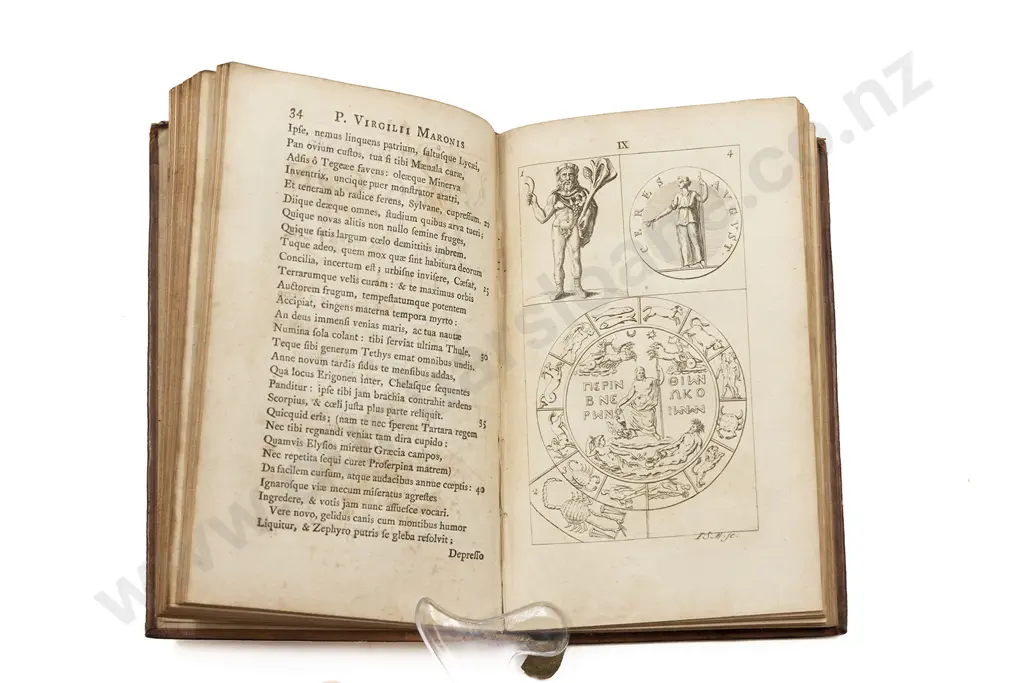 34 P. VIRGILII MARONIS
Ipſe, nemus linquens patrium, ſaltuſque Lycæi,
Pan ovium cuſtos, tua ſi tibi Mænala curæ,
Adſis ô Tegeæe favens: oleæque Minerva
Inventrix, uncique puer monſtrator aratri,
Et teneram ab radice ferens, Sylvane, cupreſſum. 20
Diique deæque omnes, ſtudium quibus arva tueri;
Quique novas alitis non nullo ſemine fruges,
Quique ſatis largum cœlo demittitis imbrem.
Tuque adeo, quem mox quæ ſint habitura deorum
Concilia, incertum eſt; urbiſne inviſere, Cæſar, 25
Terrarumque velis curam: & te maximus orbis
Auctorem frugum, tempeſtatumque potentem
Accipiat, cingens materna tempora myrto:
An deus immenſi venias maris, ac tua nautæ
Numina ſola colant: tibi ſerviat ultima Thule, 30
Teque ſibi generum Tethys emat omnibus undis.
Anne novum tardis ſidus te menſibus addas,
Qua locus Erigonen inter, Chelaſque ſequentes
Panditur: ipſe tibi jam brachia contrahit ardens
Scorpius, & cœli juſta plus parte reliquit.
Quicquid eris; (nam te nec ſperent Tartara regem 35
Nec tibi regnandi veniat tam dira cupido:
Quamvis Elyſios miretur Græcia campos,
Nec repetita ſequi curet Proſerpina matrem)
Da facilem curſum, atque audacibus annue cœptis: 40
Ignaroſque viæ mecum miſeratus agreſtes
Ingredere, & votis jam nunc aſſueſce vocari.
Vere novo, gelidus canis cum montibus humor
Liquitur, & Zephyro putris ſe gleba reſolvit;
Depreſſo
IX
1
4
CERES AVGVST
ΠΕΡΙΝ ΘΙΑΝ
Β ΝΕ ΩΚΟ
ΡΩΝ ΙΩΝΩΝ